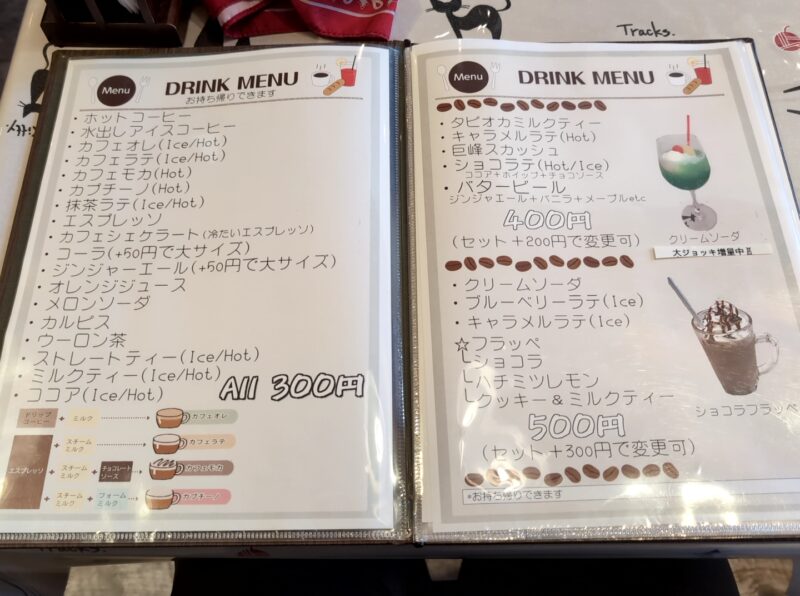 Tracks.
Menu
DRINK MENU
お持ち帰りできます
・ホットコーヒー
・水出しアイスコーヒー
・カフェオレ(Ice/Hot)
・カフェラテ(Ice/Hot)
・カフェモカ(Hot)
・カプチーノ(Hot)
・抹茶ラテ(Ice/Hot)
・エスプレッソ
・カフェシェケラート(冷たいエスプレッソ)
・コーラ(+50円で大サイズ)
・ジンジャーエール(+50円で大サイズ)
・オレンジジュース
・メロンソーダ
・カルピス
・ウーロン茶
・ストレートティー(Ice/Hot)
・ミルクティー(Ice/Hot)
・ココア(Ice/Hot)
All 300円
ドリップコーヒー + ミルク カフェオレ
エスプレッソ
+ スチームミルク カフェラテ
+ スチームミルク + チョコレートソース カフェモカ
+ スチームミルク + フォームミルク カプチーノ
Tracks.
Menu
DRINK MENU
・タピオカミルクティー
・キャラメルラテ(Hot)
・巨峰スカッシュ
・ショコラテ(Hot/Ice)
ココア+ホイップ+チョコソース
・バタービール
ジンジャエール+バニラ+メープルetc
400円
(セット+200円で変更可)
クリームソーダ
大ジョッキ増量中!!
・クリームソーダ
・ブルーベリーラテ(Ice)
・キャラメルラテ(Ice)
☆フラッペ
Lショコラ
Lハチミツレモン
Lクッキー&ミルクティー
500円
(セット+300円で変更可)
ショコラフラッペ
*お持ち帰りできます